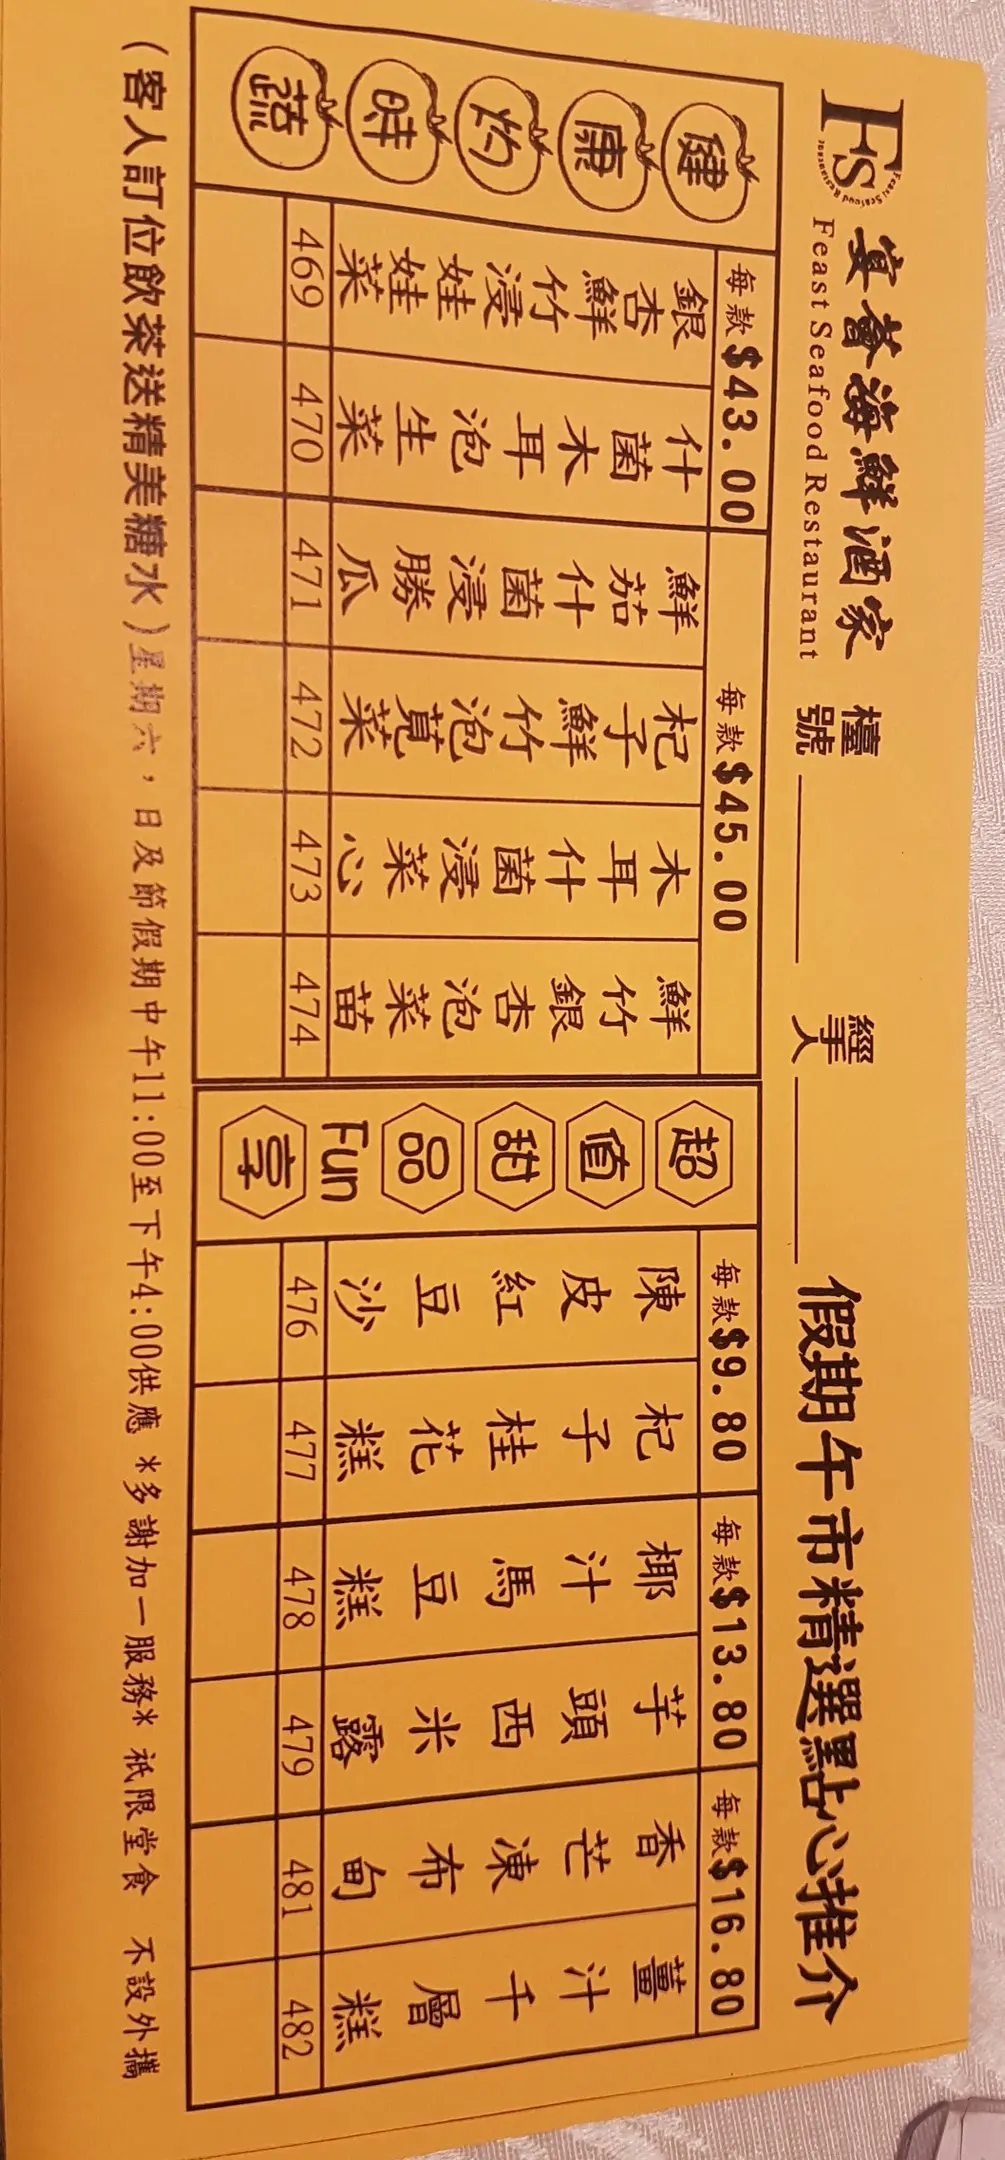 FS
Feast Seafood Restaurant
宴薈海鮮酒家
Feast Seafood Restaurant
檯號
經手人
假期午市精選點心推介
健康灼時蔬
每款$43.00
每款$45.00
銀杏鮮竹浸娃娃菜
469
什菌木耳泡生菜
470
鮮茄什菌浸勝瓜
471
杞子鮮竹泡莧菜
472
木耳什菌浸菜心
473
鮮竹銀杏泡菜苗
474
超值甜品Fun享
每款$9.80
每款$13.80
每款$16.80
陳皮紅豆沙
476
杞子桂花糕
477
椰汁馬豆糕
478
芋頭西米露
479
香芒凍布甸
481
薑汁千層糕
482
(客人訂位飲茶送精美糖水)星期六，日及節假期中午11:00至下午4:00供應 *多謝加一服務* 祇限堂食 不設外攜